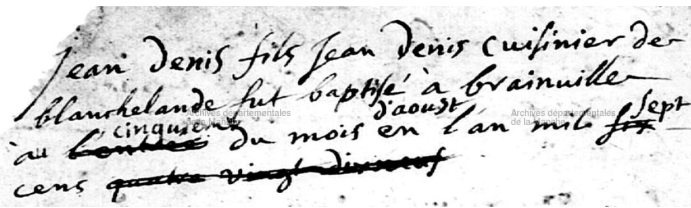 Jean denis fils Jean denis cuisinier de
blanchelande fut baptisé à brainville
au cinquieme du mois d'aoust en l'an mil sept
cens quatre vingt dixneuf
Archives départementales
Archives départementales
de la Manche